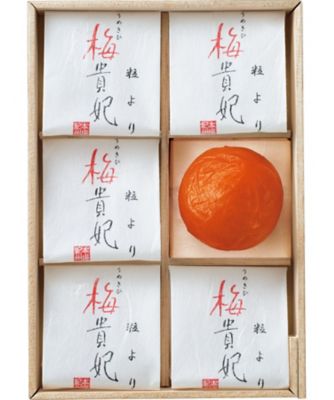 うめきひ
粒より
梅貴妃
うめきひ
粒より
梅貴妃
うめきひ
粒より
梅貴妃
うめきひ
粒より
梅貴妃
うめきひ
粒より
梅貴妃